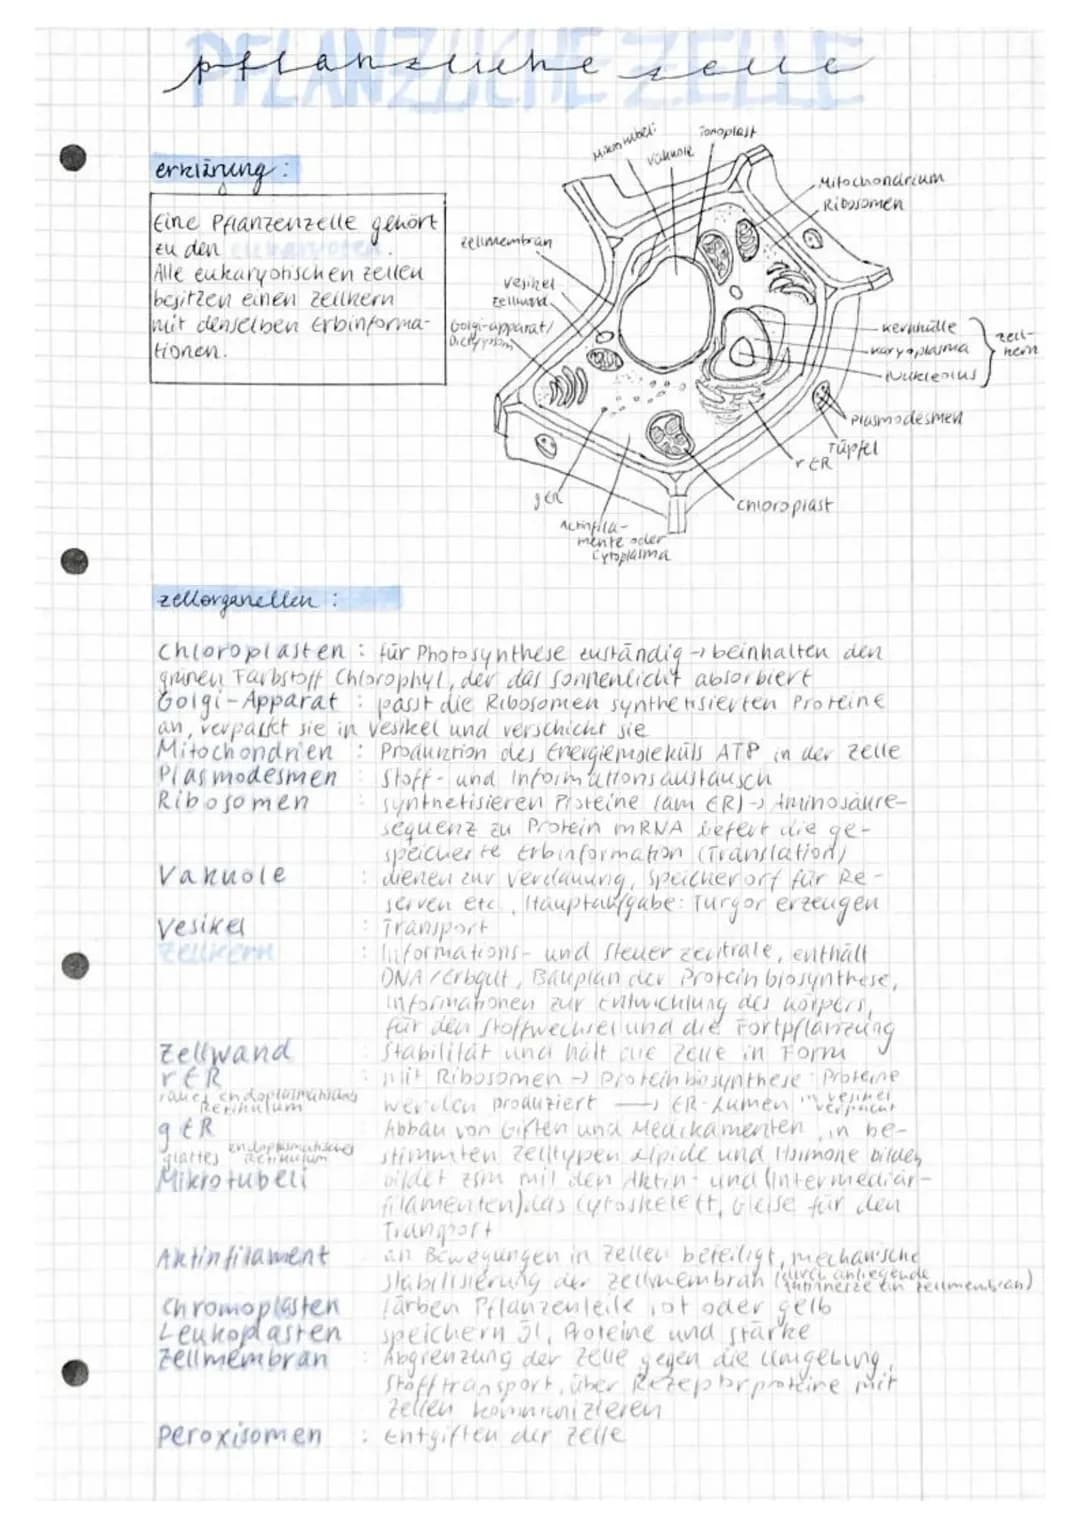 PFLANZLICHE ZELLE
pflanzliche zelle
erklärung :
Eine Pflanzenzelle gehört
zu den eukaryoten.
Alle eukaryotischen zellen
besitzen einen zellkern
mit denselben Erbinforma-
tionen.
Mikrotubeli
Vakuole
Tonoplast
Mitochondrium
Ribosomen
zellmembran
Vesikel
zellwand
Golgi-apparat/
Dictyosom
kernhülle
karyoplasma
Nukleolus
zell-
kern
Plasmodesmen
Tüpfel
rER
chloroplast
gER
Actinfila-
mente oder
Cytoplasma
zellorganellen :
Chloroplasten : für Photosynthese zuständig → beinhalten den
grünen Farbstoff Chlorophyl, der das sonnenlicht absorbiert
Golgi-Apparat : passt die Ribosomen synthetisierten Proteine
an, verpackt sie in Vesikel und verschickt sie
Mitochondrien : Produktion des Energiemoleküls ATP in der zelle
Plasmodesmen : Stoff- und Informationsaustausch
Ribosomen : synthetisieren Proteine (am ER) → Aminosäure-
sequenz zu Protein mRNA liefert die ge-
speicherte Erbinformation (Translation)
Vakuole : dienen zur Verdauung, Speicherort für Re-
serven etc., Hauptaufgabe: Turgor erzeugen
Vesikel : Transport
Zellkern : Informations- und Steuerzentrale, enthält
DNA/Erbgut, Bauplan der Proteinbiosynthese,
Informationen zur Entwicklung des körpers,
für den Stoffwechsel und die Fortpflanzung
Zellwand : Stabilität und hält die Zelle in Form
rER : mit Ribosomen → Proteinbiosynthese: Proteine
raues endoplasmatisches
Retikulum
werden produziert → ER-Lumen in vesikel verpackt
gER : Abbau von Giften und Medikamenten, in be-
glattes endoplasmatisches Retikulum
stimmten Zelltypen Lipide und Hormone bilden
Mikrotubeli : bildet zsm mit den Aktin- und (Intermediär-
filamenten) das Cytoskelett, Gleise für den
Transport
Aktinfilament : an Bewegungen in Zellen beteiligt, mechanische
stabilisierung der zellmembran (durch anliegende
zellmembran)
Chromoplasten : färben Pflanzenteile rot oder gelb
Leukoplasten : speichern Öl, Proteine und stärke
Zellmembran : Abgrenzung der Zelle gegen die Umgebung,
Stofftransport, über Rezeptorproteine mit
Zellen kommunizieren
Peroxisomen : Entgiften der Zelle